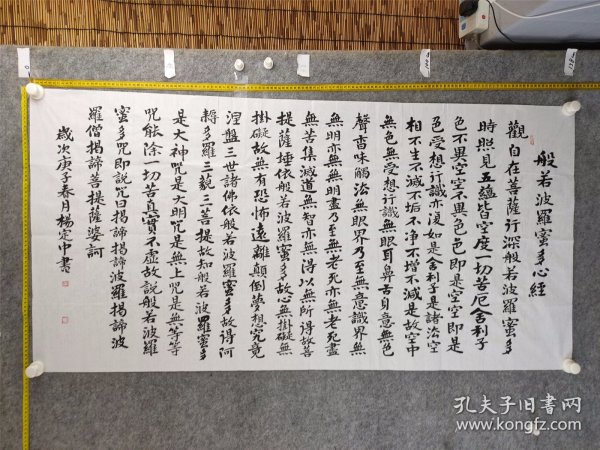 般若波羅蜜多心經
觀自在菩薩行深般若波羅蜜多
時照見五蘊皆空度一切苦厄舍利子
色不異空空不異色色即是空空即是
色受想行識亦復如是舍利子是諸法空
相不生不滅不垢不净不增不減是故空中
無色無受想行識無眼耳鼻舌身意無色
聲香味觸法無眼界乃至無意識界無
無明亦無無明盡乃至無老死亦無老死盡
無苦集滅道無智亦無得以無所得故菩
提薩埵依般若波羅蜜多故心無掛礙無
掛礙故無有恐怖遠離顛倒夢想究竟
涅盤三世諸佛依般若波羅蜜多故得阿
耨多羅三藐三菩提故知般若波羅蜜多
是大神咒是大明咒是無上咒是無等等
咒能除一切苦真實不虛故說般若波羅
蜜多咒即說咒曰揭諦揭諦波羅揭諦波
羅僧揭諦菩提薩婆訶
歲次庚子春月楊定中書
孔夫子旧书网
www.kongfz.com